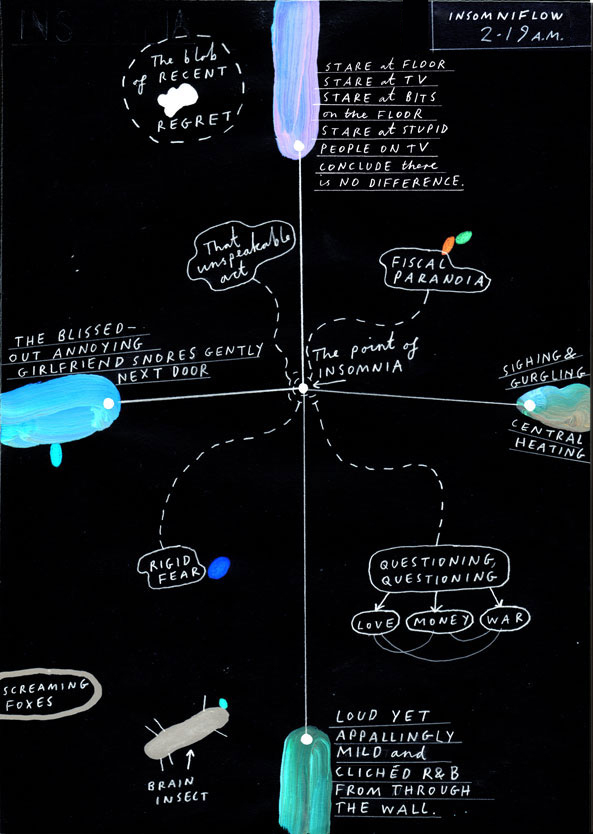 INSOMNIA
INSOMNIFLOW
2-19 A.M.
The blob
of RECENT
REGRET
STARE at FLOOR
STARE at TV
STARE at BITS
on the FLOOR
STARE at STUPID
PEOPLE ON TV
CONCLUDE there
is NO DIFFERENCE.
That
unspeakable
act
FISCAL
PARANOIA
THE BLISSED-
OUT ANNOYING
GIRLFRIEND SNORES GENTLY
NEXT DOOR
The point of
INSOMNIA
SIGHING &
GURGLING
CENTRAL
HEATING
RIGID
FEAR
QUESTIONING,
QUESTIONING
LOVE
MONEY
WAR
SCREAMING
FOXES
BRAIN
INSECT
LOUD YET
APPALLINGLY
MILD and
CLICHÉD R&B
FROM THROUGH
THE WALL.